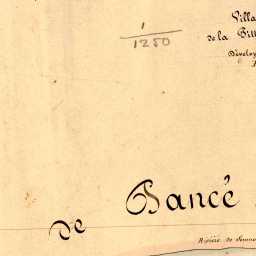 1
1250
Villa
de la
Dévelop
de Dancé
Rivière de